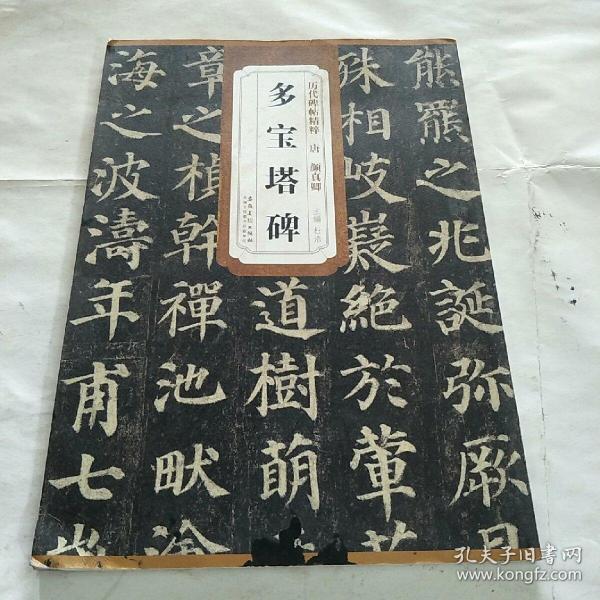 历代碑帖精粹 唐 颜真卿
主编 杜浩
多宝塔碑
安徽美术出版社
熊罴之兆诞弥厥月
殊相岐嶷絶於荤
道樹萌
章之楨幹禪池畎澮
海之波濤年甫七歲
孔夫子旧书网
www.kongfz.com